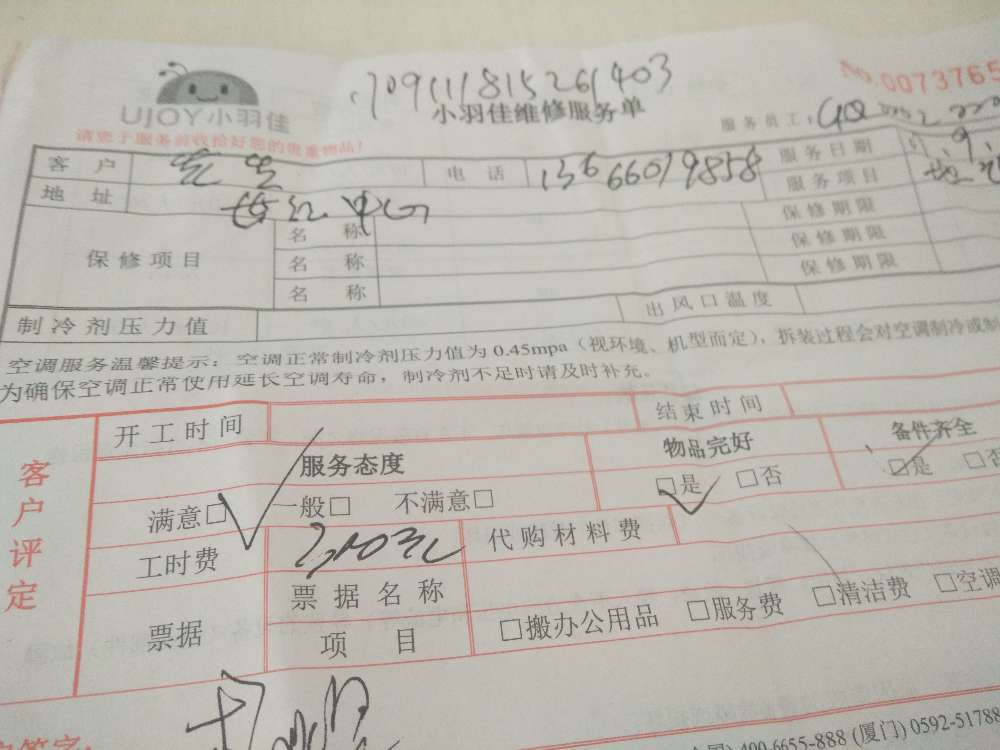 1709111815261403
No.0073765
UJOY小羽佳
小羽佳维修服务单
服务员工:
请您于服务前收拾好您的贵重物品!
客户 电话 13666019858 服务日期
地址 长江中心 服务项目
保修项目 名称 保修期限
名称 保修期限
名称 保修期限
制冷剂压力值 出风口温度
空调服务温馨提示:空调正常制冷剂压力值为0.45mpa(视环境、机型而定),拆装过程会对空调制冷或制
为确保空调正常使用延长空调寿命,制冷剂不足时请及时补充。
客户评定
开工时间 结束时间
服务态度 物品完好 备件齐全
满意□ 一般□ 不满意□ □是 □否 □是 □否
工时费 代购材料费
票据 票据名称
项目 □搬办公用品 □服务费 □清洁费 □空调
400-6655-888 (厦门) 0592-51788